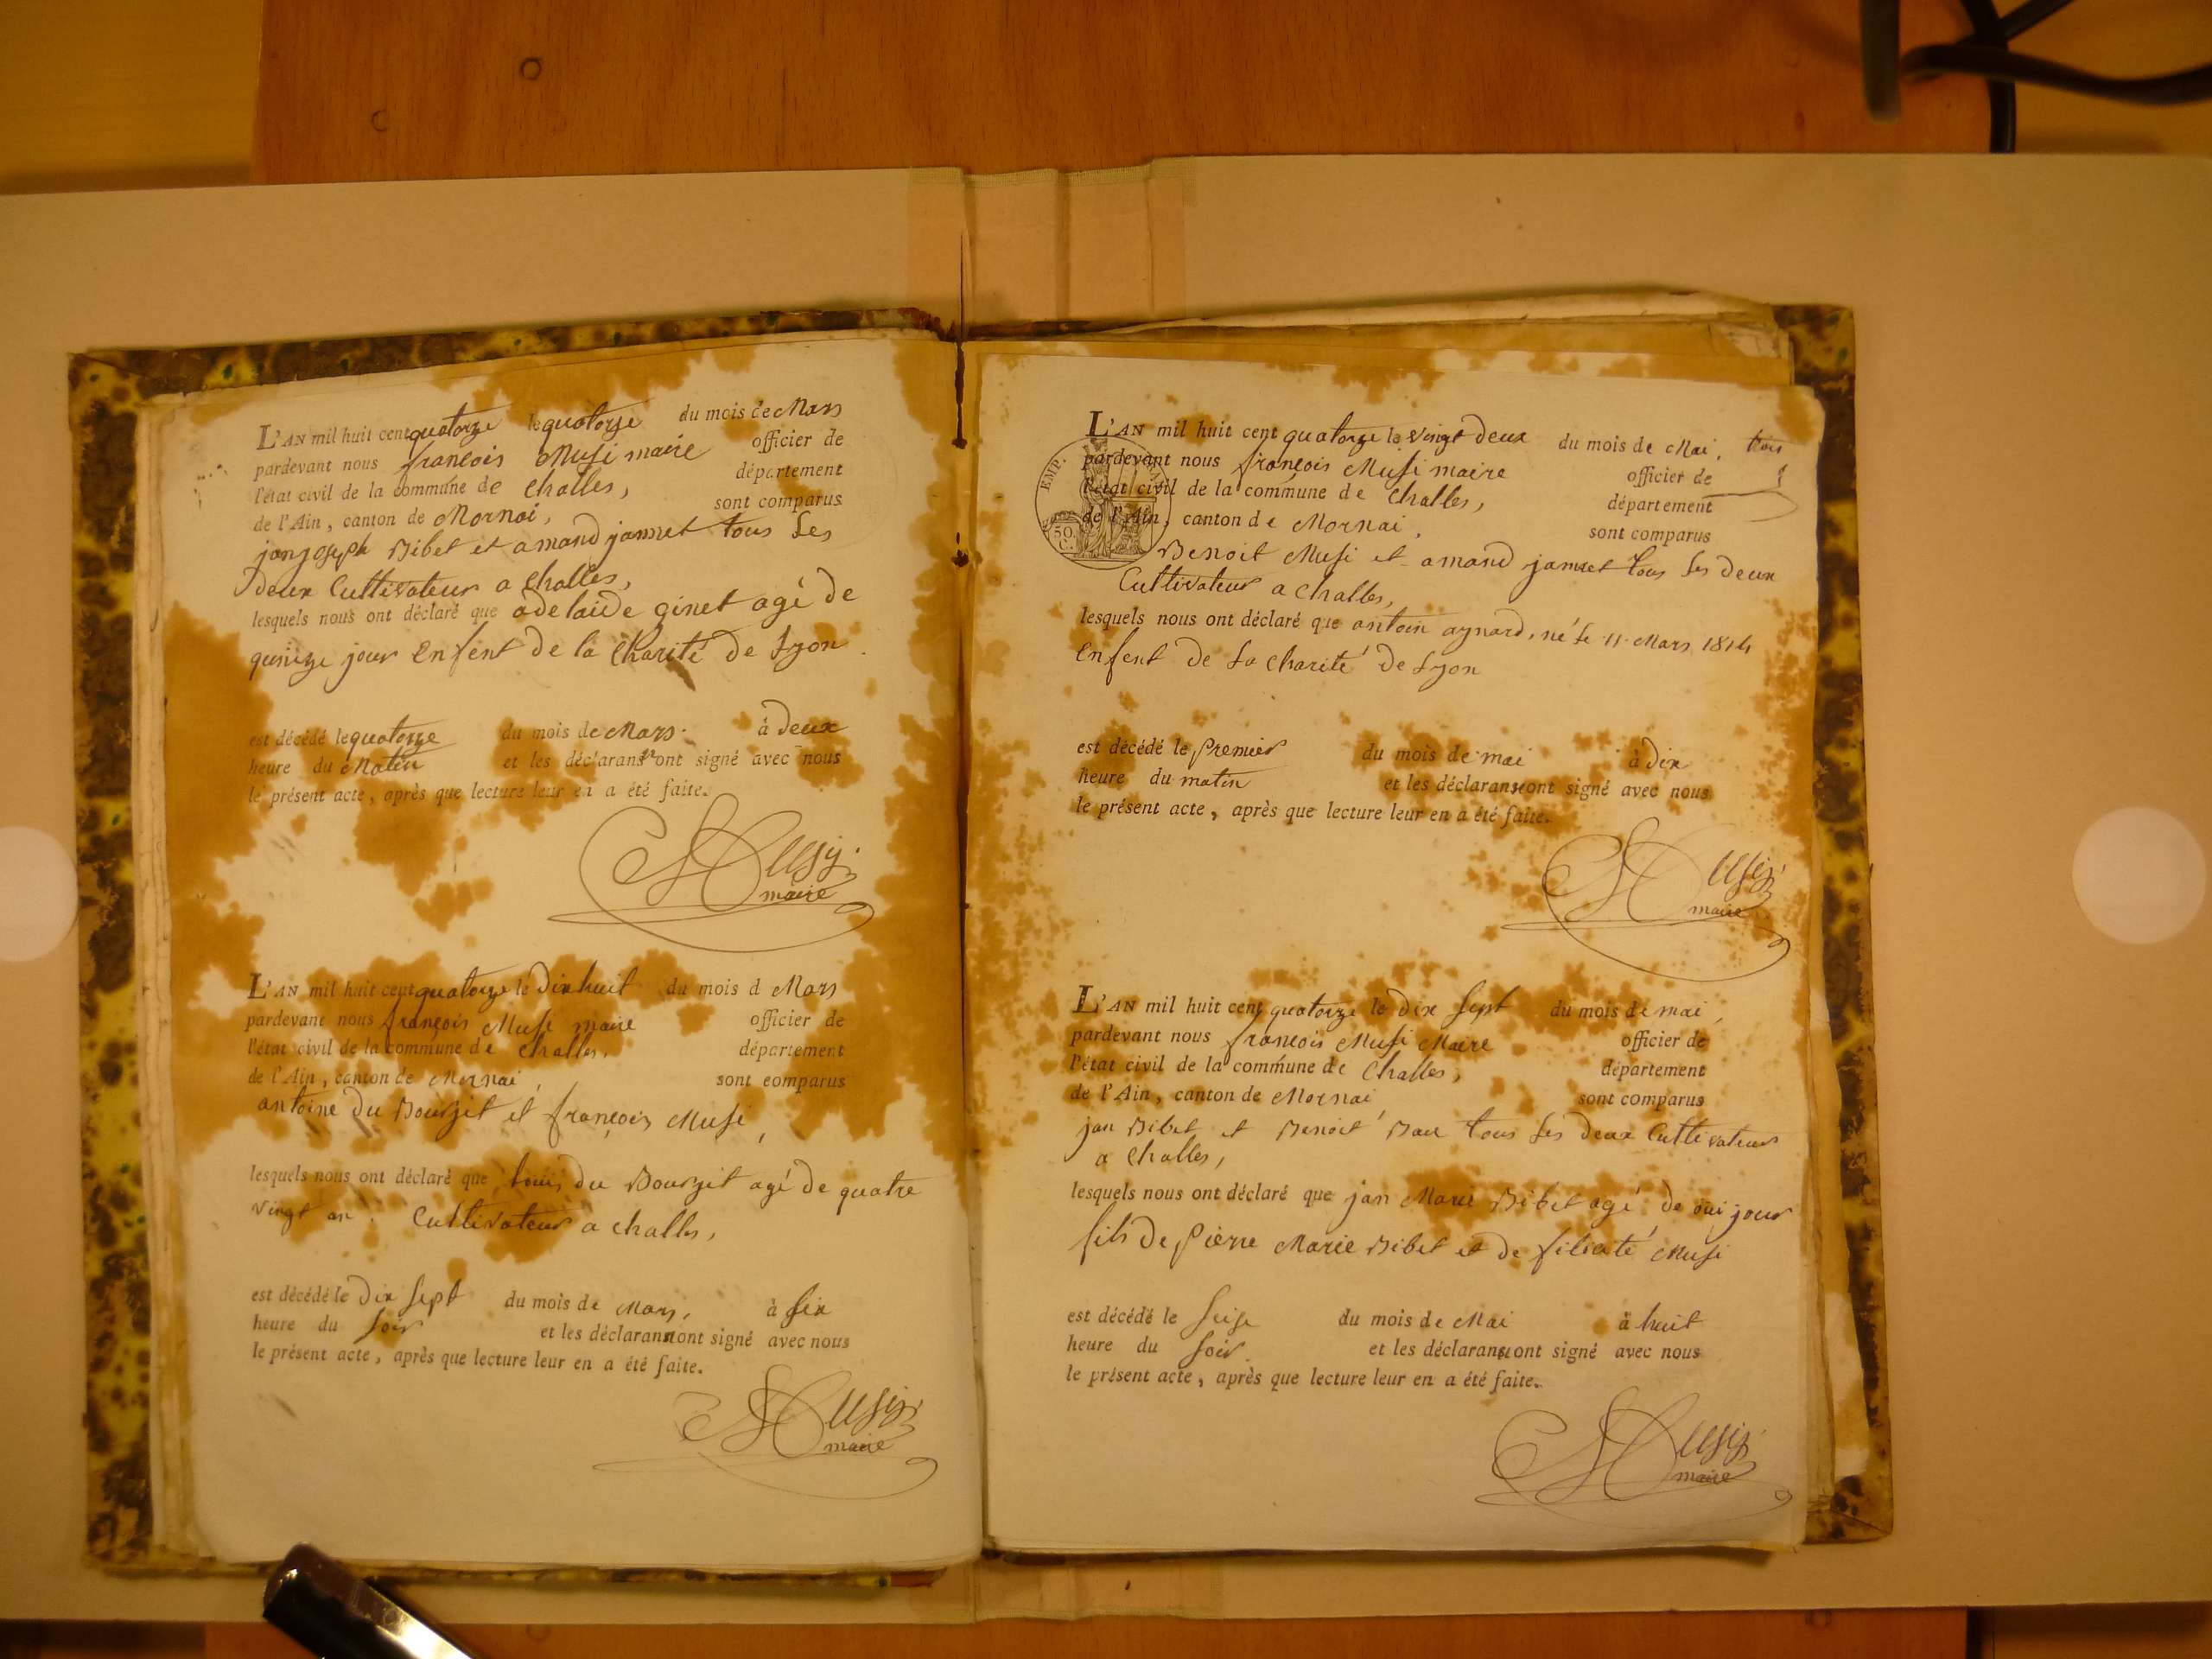 L'AN mil huit cent quatorze le quatorze du mois de Mars
pardevant nous françois Musi maire officier de
l'état civil de la commune de Challes, département
de l'Ain, canton de Mornai, sont comparus
janjoseph Bibet et amand jannet tous Les
deux Cultivateur a Challes,
lesquels nous ont déclaré que adelaide ginet agé de
quinze jour Enfent de la Charité de Lyon
est décédé le quatorze du mois de Mars à deux
heure du Matin et les déclarans ont signé avec nous
le présent acte, après que lecture leur en a été faite.
Musy
maire
L'AN mil huit cent quatorze le dix huit du mois d Mars
pardevant nous françois Musi maire officier de
l'état civil de la commune de Challes, département
de l'Ain, canton de Mornai, sont comparus
antoine du Bourjet et françois Musi,
lesquels nous ont déclaré que Louis du Bourjet agé de quatre
vingt an. Cultivateur a Challes,
est décédé le dix Sept du mois de Mars, à Six
heure du Soir et les déclarans ont signé avec nous
le présent acte, après que lecture leur en a été faite.
Musy
maire
L'AN mil huit cent quatorze le vingt deux du mois de Mai,
pardevant nous françois Musi maire officier de
l'état civil de la commune de Challes, département
de l'Ain, canton de Mornai, sont comparus
EMP.
50
C.
Benoit Musi et amand jannet tous Les deux
Cultivateur a Challes,
lesquels nous ont déclaré que antoin aynard, né Le 11 Mars 1814
Enfent de La Charité de Lyon
est décédé le Premier du mois de mai à dix
heure du matin et les déclarans ont signé avec nous
le présent acte, après que lecture leur en a été faite.
Musy
maire
L'AN mil huit cent quatorze le dix Sept du mois de mai,
pardevant nous françois Musi Maire officier de
l'état civil de la commune de Challes, département
de l'Ain, canton de Mornai, sont comparus
jan Bibet et Benoit tous Les deux Cultivateur
a Challes,
lesquels nous ont déclaré que jan Marie Bibet agé de oui jour
fils de Pierre Marie Bibet et de félicité Musi
est décédé le Seise du mois de Mai à huit
heure du Soir et les déclarans ont signé avec nous
le présent acte, après que lecture leur en a été faite.
Musy
maire